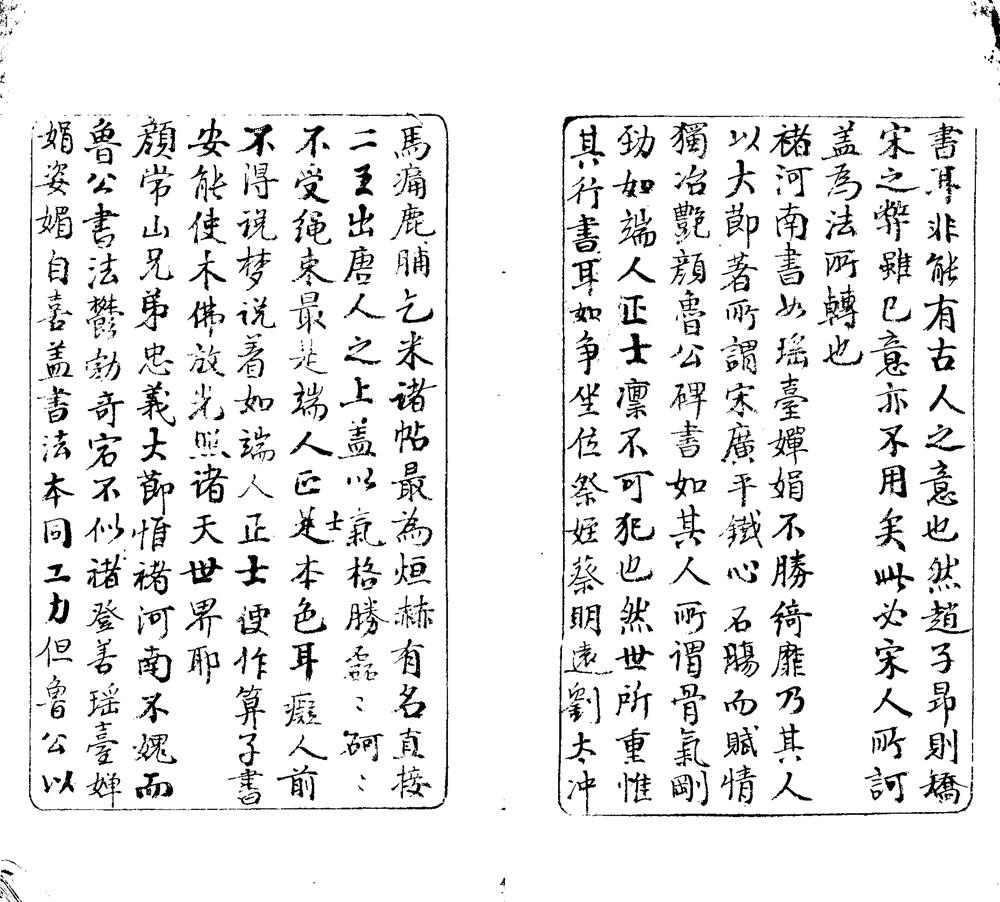 書耳非能有古人之意也然趙子昂則矯
宋之弊雖己意亦不用矣此必宋人所訶
蓋為法所轉也
褚河南書如瑶臺嬋娟不勝綺靡乃其人
以大節著所謂宋廣平鐵心石腸而賦情
獨冶艷顏魯公碑書如其人所谓骨氣剛
勁如端人正士凛不可犯也然世所重惟
其行書耳如争坐位祭姪蔡明遠劉太冲
馬病鹿脯乞米诸帖最為烜赫有名直接
二王出唐人之上盖以氣格勝磊〻砢〻
不受绳束最是端人正士是本色耳癡人前
不得说梦说着如端人正士便作算子書
安能使木佛放光照诸天世界耶
顏常山兄弟忠義大節惟褚河南不媿而
魯公書法鬱勃奇宕不似褚登善瑶臺嬋
娟姿媚自喜盖書法本同工力但魯公以